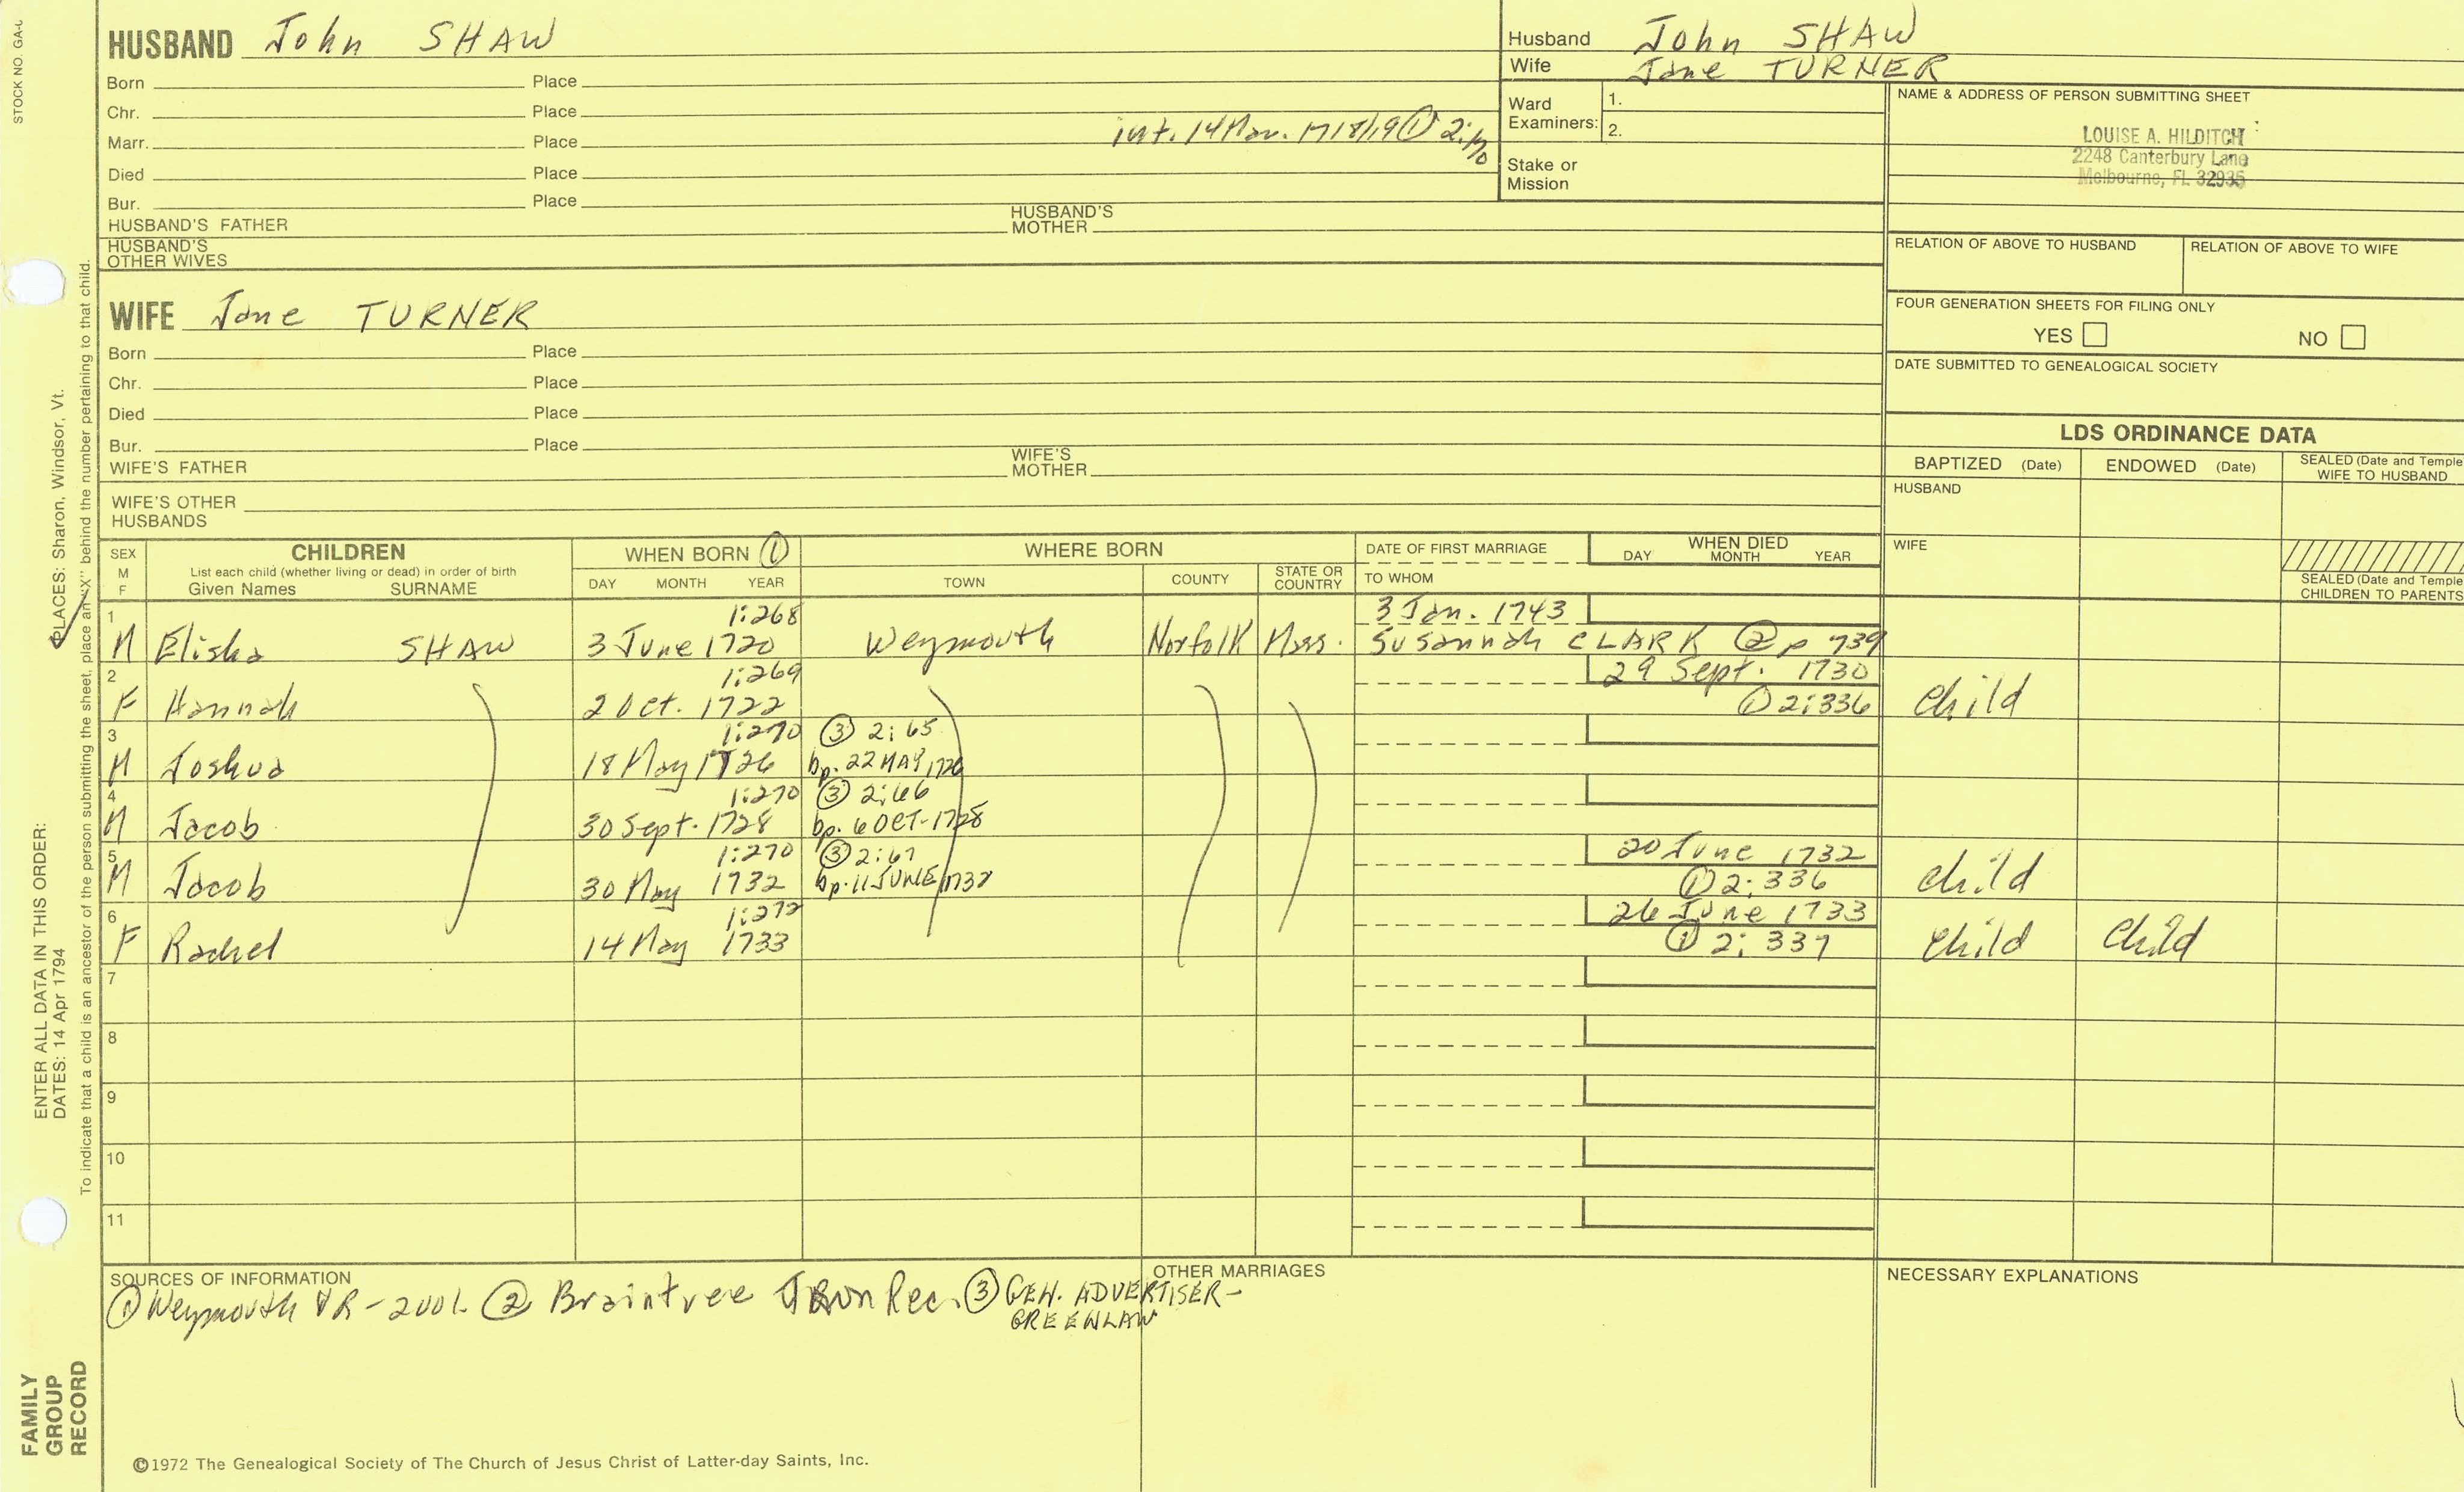 STOCK NO. GA-
HUSBAND John SHAW
Born Place
Chr. Place
Marr. Place int. 14 Mar. 1718/19 ① 2:170
Died Place
Bur. Place
HUSBAND'S FATHER HUSBAND'S MOTHER
HUSBAND'S OTHER WIVES
Husband John SHAW
Wife Jane TURNER
Ward Examiners: 1.
2.
Stake or Mission
NAME & ADDRESS OF PERSON SUBMITTING SHEET
LOUISE A. HILDITCH
2248 Canterbury Lane
Melbourne, FL 32935
RELATION OF ABOVE TO HUSBAND RELATION OF ABOVE TO WIFE
FOUR GENERATION SHEETS FOR FILING ONLY
YES NO
DATE SUBMITTED TO GENEALOGICAL SOCIETY
WIFE Jane TURNER
Born Place
Chr. Place
Died Place
Bur. Place
WIFE'S FATHER WIFE'S MOTHER
WIFE'S OTHER HUSBANDS
LDS ORDINANCE DATA
BAPTIZED (Date) ENDOWED (Date) SEALED (Date and Temple
WIFE TO HUSBAND
HUSBAND
WIFE
SEALED (Date and Temple
CHILDREN TO PARENTS
SEX
M
F
CHILDREN
List each child (whether living or dead) in order of birth
Given Names SURNAME
WHEN BORN ①
DAY MONTH YEAR
WHERE BORN
TOWN COUNTY STATE OR COUNTRY
DATE OF FIRST MARRIAGE
TO WHOM
WHEN DIED
DAY MONTH YEAR
1 1:268 3 Jan. 1743
M Elisha SHAW 3 June 1720 Weymouth Norfolk Mass. Susannah CLARK ② p 739
2 1:269 29 Sept. 1730
F Hannah 2 Oct. 1722 ① 2:336 Child
3 1:270 ③ 2:65
M Joshua 18 May 1726 bp. 22 MAY 1726
4 1:270 ③ 2:66
M Jacob 30 Sept. 1728 bp. 6 OCT-1728
5 1:270 ③ 2:67 20 June 1732
M Jacob 30 May 1732 bp. 11 JUNE 1732 ① 2:336 Child
6 1:272 26 June 1733
F Rachel 14 May 1733 ① 2:337 Child Child
7
8
9
10
11
SOURCES OF INFORMATION
① Weymouth VR - 2vol. ② Braintree Town Rec. ③ GEN. ADVERTISER-
GREENLAW
OTHER MARRIAGES
NECESSARY EXPLANATIONS
©1972 The Genealogical Society of The Church of Jesus Christ of Latter-day Saints, Inc.
FAMILY
GROUP
RECORD
ENTER ALL DATA IN THIS ORDER:
DATES: 14 Apr 1794 PLACES: Sharon, Windsor, Vt.
To indicate that a child is an ancestor of the person submitting the sheet, place an "X" behind the number pertaining to that child.